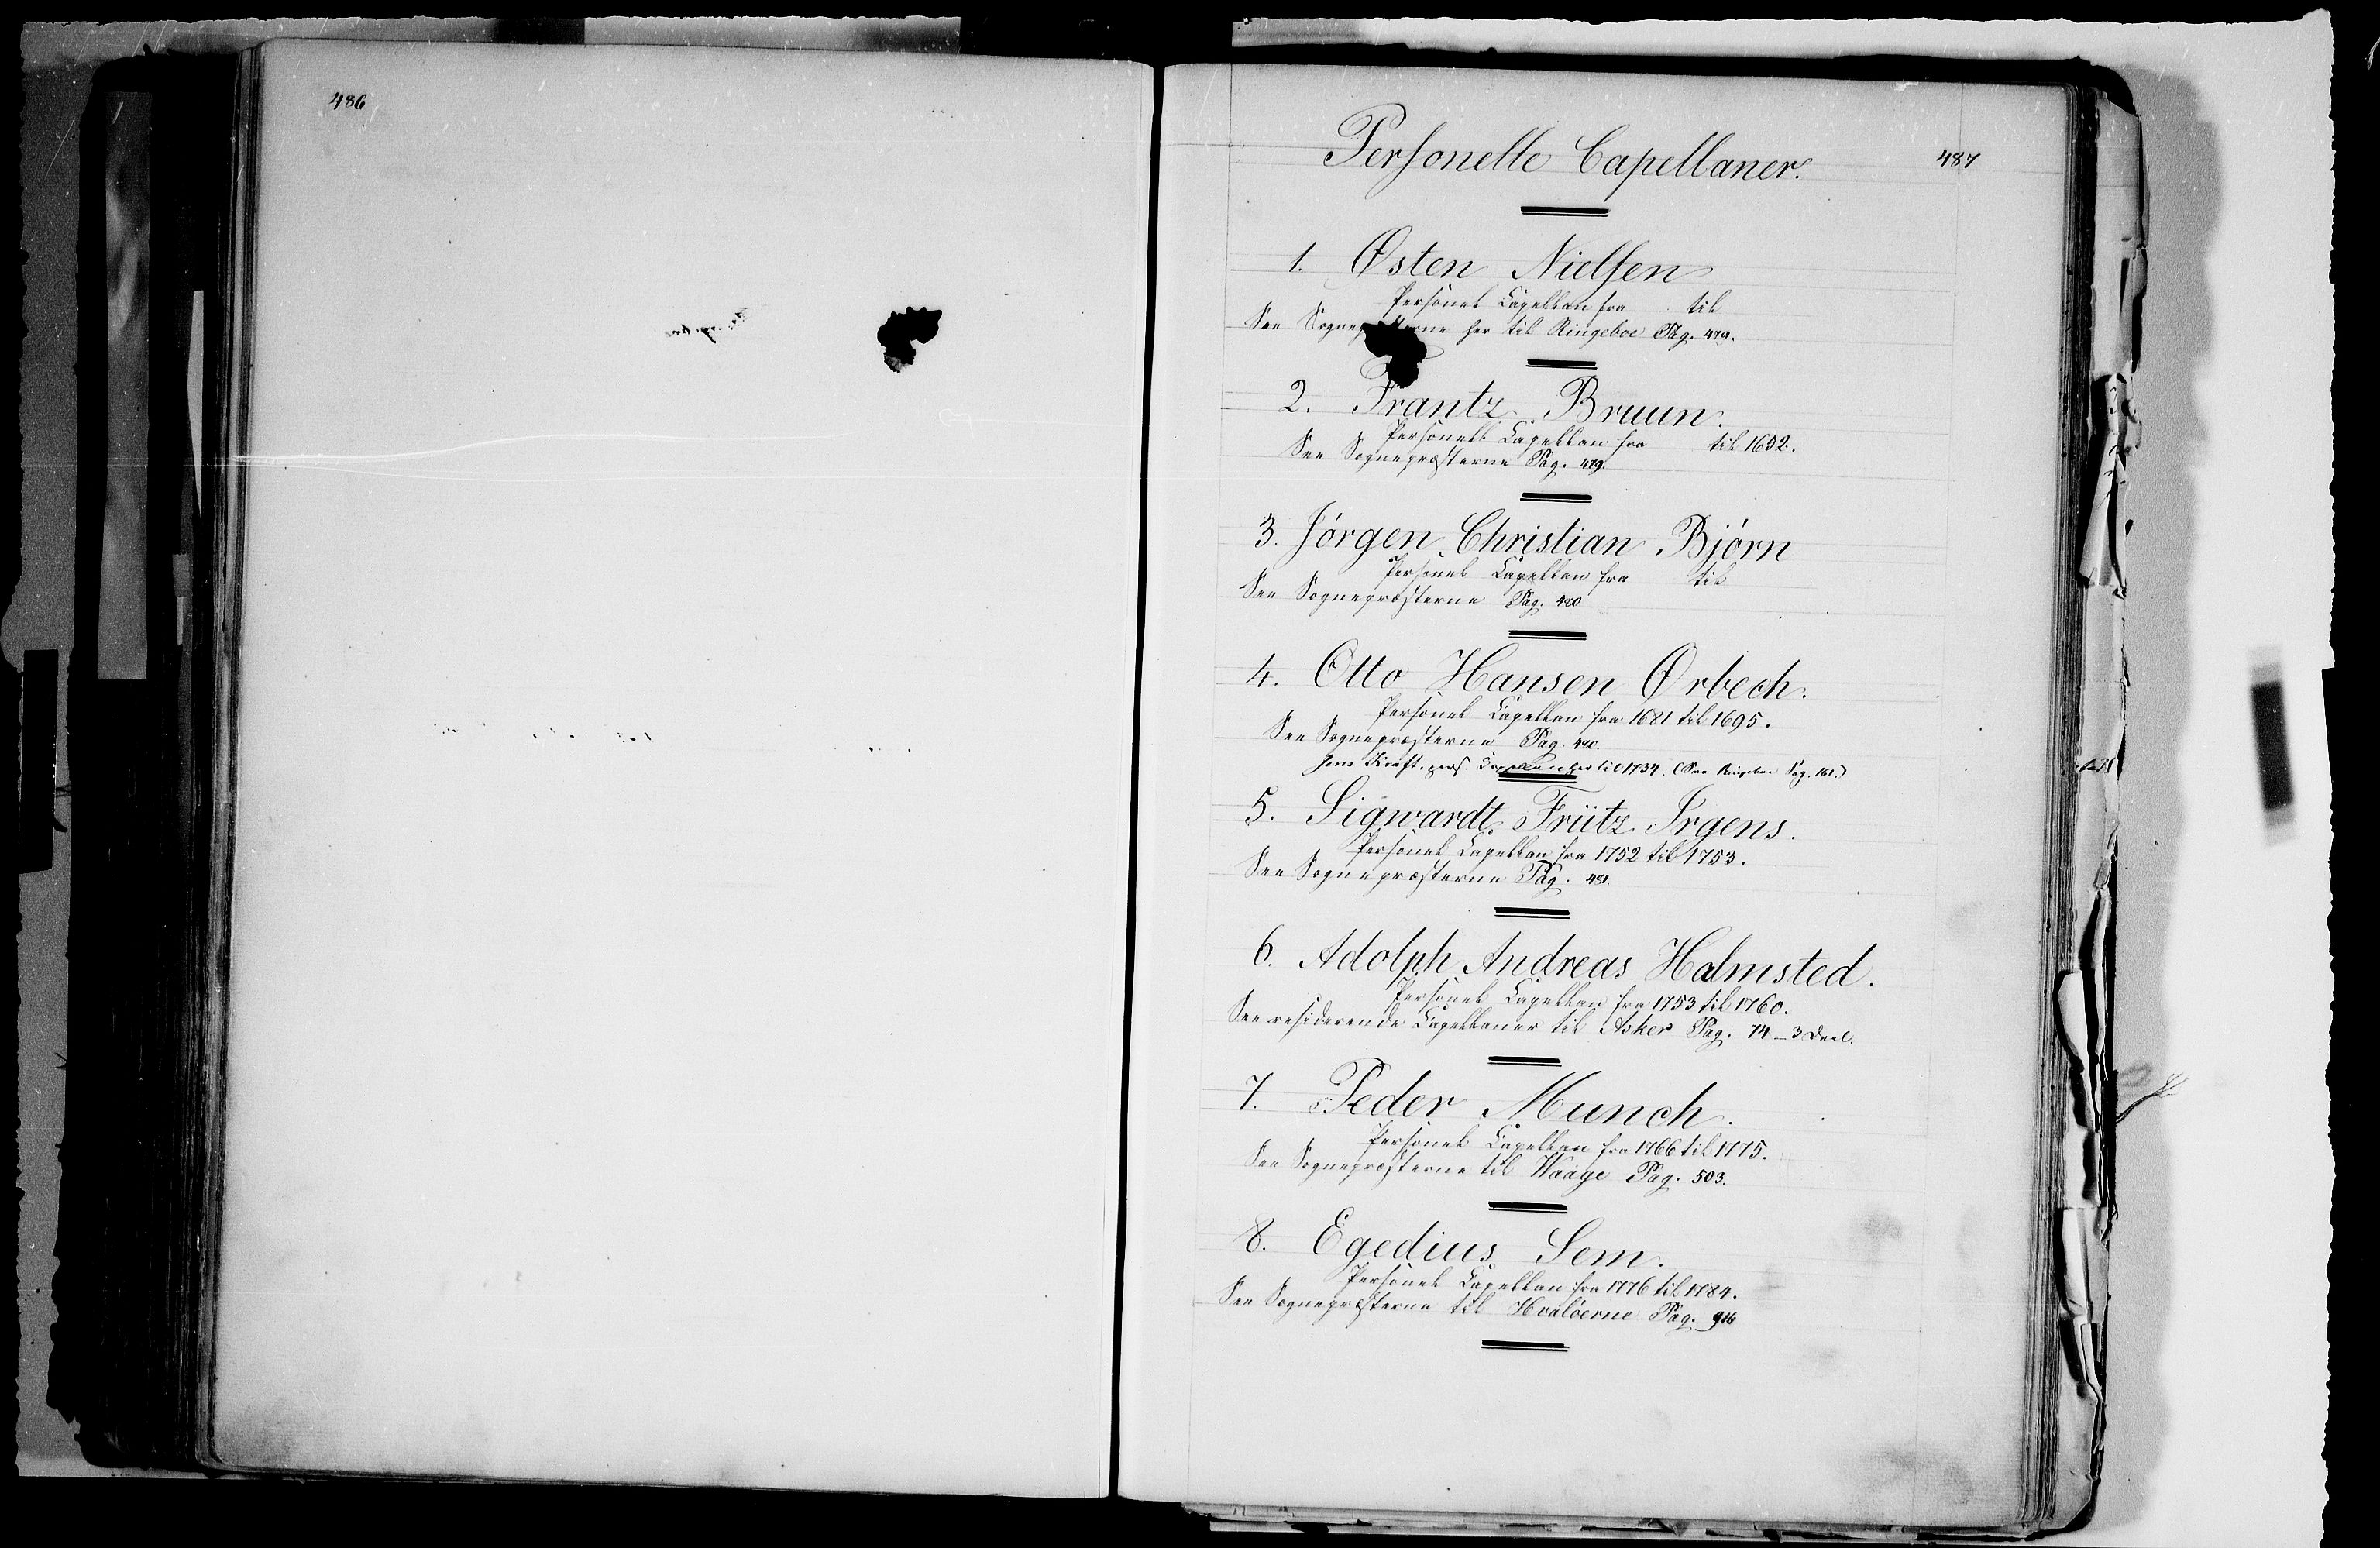 486
487
Personelle Capellaner.
1. Østen Nielsen
Personel Capellan fra til
See Sognepræsterne her til Ringeboe Pag. 479.
2. Frantz Bruun.
Personel Capellan fra til 1652.
See Sognepræsterne Pag. 479.
3. Jørgen Christian Bjørn
Personel Capellan fra til
See Sognepræsterne Pag. 480
4. Otto Hansen Ørbech.
Personel Capellan fra 1681 til 1695.
See Sognepræsterne Pag. 480.
Jens Kraft, pers. Capellan her til 1734. (See Pag. 161.)
5. Sigwardt Frütz Irgens.
Personel Capellan fra 1752 til 1753.
See Sognepræsterne Pag. 481.
6. Adolph Andreas Halmsted.
Personel Capellan fra 1753 til 1760.
See residerende Capellaner til Asker Pag. 74 – 3 Deel.
7. Peder Munch.
Personel Capellan fra 1766 til 1775.
See Sognepræsterne til Waage Pag. 503.
8. Egedius Sem.
Personel Capellan fra 1776 til 1784.
See Sognepræsterne til Hvaløerne Pag.